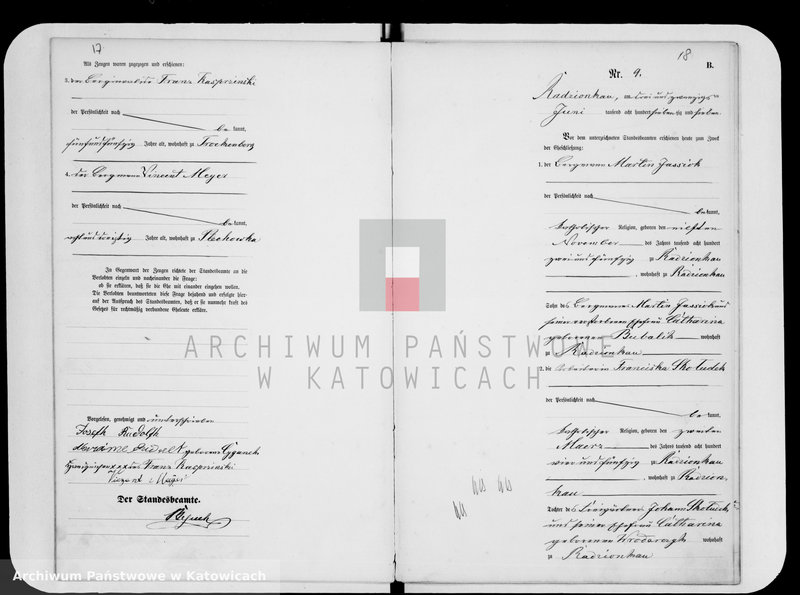 17
Als Zeugen waren zugezogen und erschienen:
3. der Bergmann Franz Kasprzinski
der Persönlichkeit nach
be kannt,
fünfundfünfzig Jahre alt, wohnhaft zu Trockenberg
4. der Bergmann Vincent Meyer
der Persönlichkeit nach
be kannt,
Jahre alt, wohnhaft zu
In Gegenwart der Zeugen richtete der Standesbeamte an die
Verlobten einzeln und nacheinander die Frage:
ob sie erklären, daß sie die Ehe mit einander eingehen wollen.
Die Verlobten beantworteten diese Frage bejahend und erfolgte hier-
auf der Ausspruch des Standesbeamten, daß er sie nunmehr kraft des
Gesetzes für rechtmäßig verbundene Eheleute erkläre.
Vorgelesen, genehmigt und unterschrieben
Joseph Rudolph
geborene Cyganek
Franz Kasprzinski
Vinzent Meyer
Der Standesbeamte.
18
B.
Nr. 9.
Radzionkau, am drei und zwanzigs ten
Juni tausend acht hundert sieben zig und sieben
Vor dem unterzeichneten Standesbeamten erschienen heute zum Zweck
der Eheschließung:
1. der Bergmann Martin Jassiok
der Persönlichkeit nach
be kannt,
katholischer Religion, geboren den elften
November des Jahres tausend acht hundert
zwei und fünfzig zu Radzionkau
, wohnhaft zu Radzionkau
Sohn des Bergmanns Martin Jassiok und
seiner verstorbenen Ehefrau Catharina
geborenen Bubalik wohnhaft
zu Radzionkau
2. die Arbeiterin Franciska Skoludek
der Persönlichkeit nach
be kannt,
katholischer Religion, geboren den zweiten
Maerz des Jahres tausend acht hundert
vier und fünfzig zu Radzionkau
, wohnhaft zu Radzion-
kau
Tochter des Freigärtners Johann Skoludek
und seiner Ehefrau Catharina
geborenen wohnhaft
zu Radzionkau
ARCHIWUM PAŃSTWOWE
W KATOWICACH
Archiwum Państwowe w Katowicach